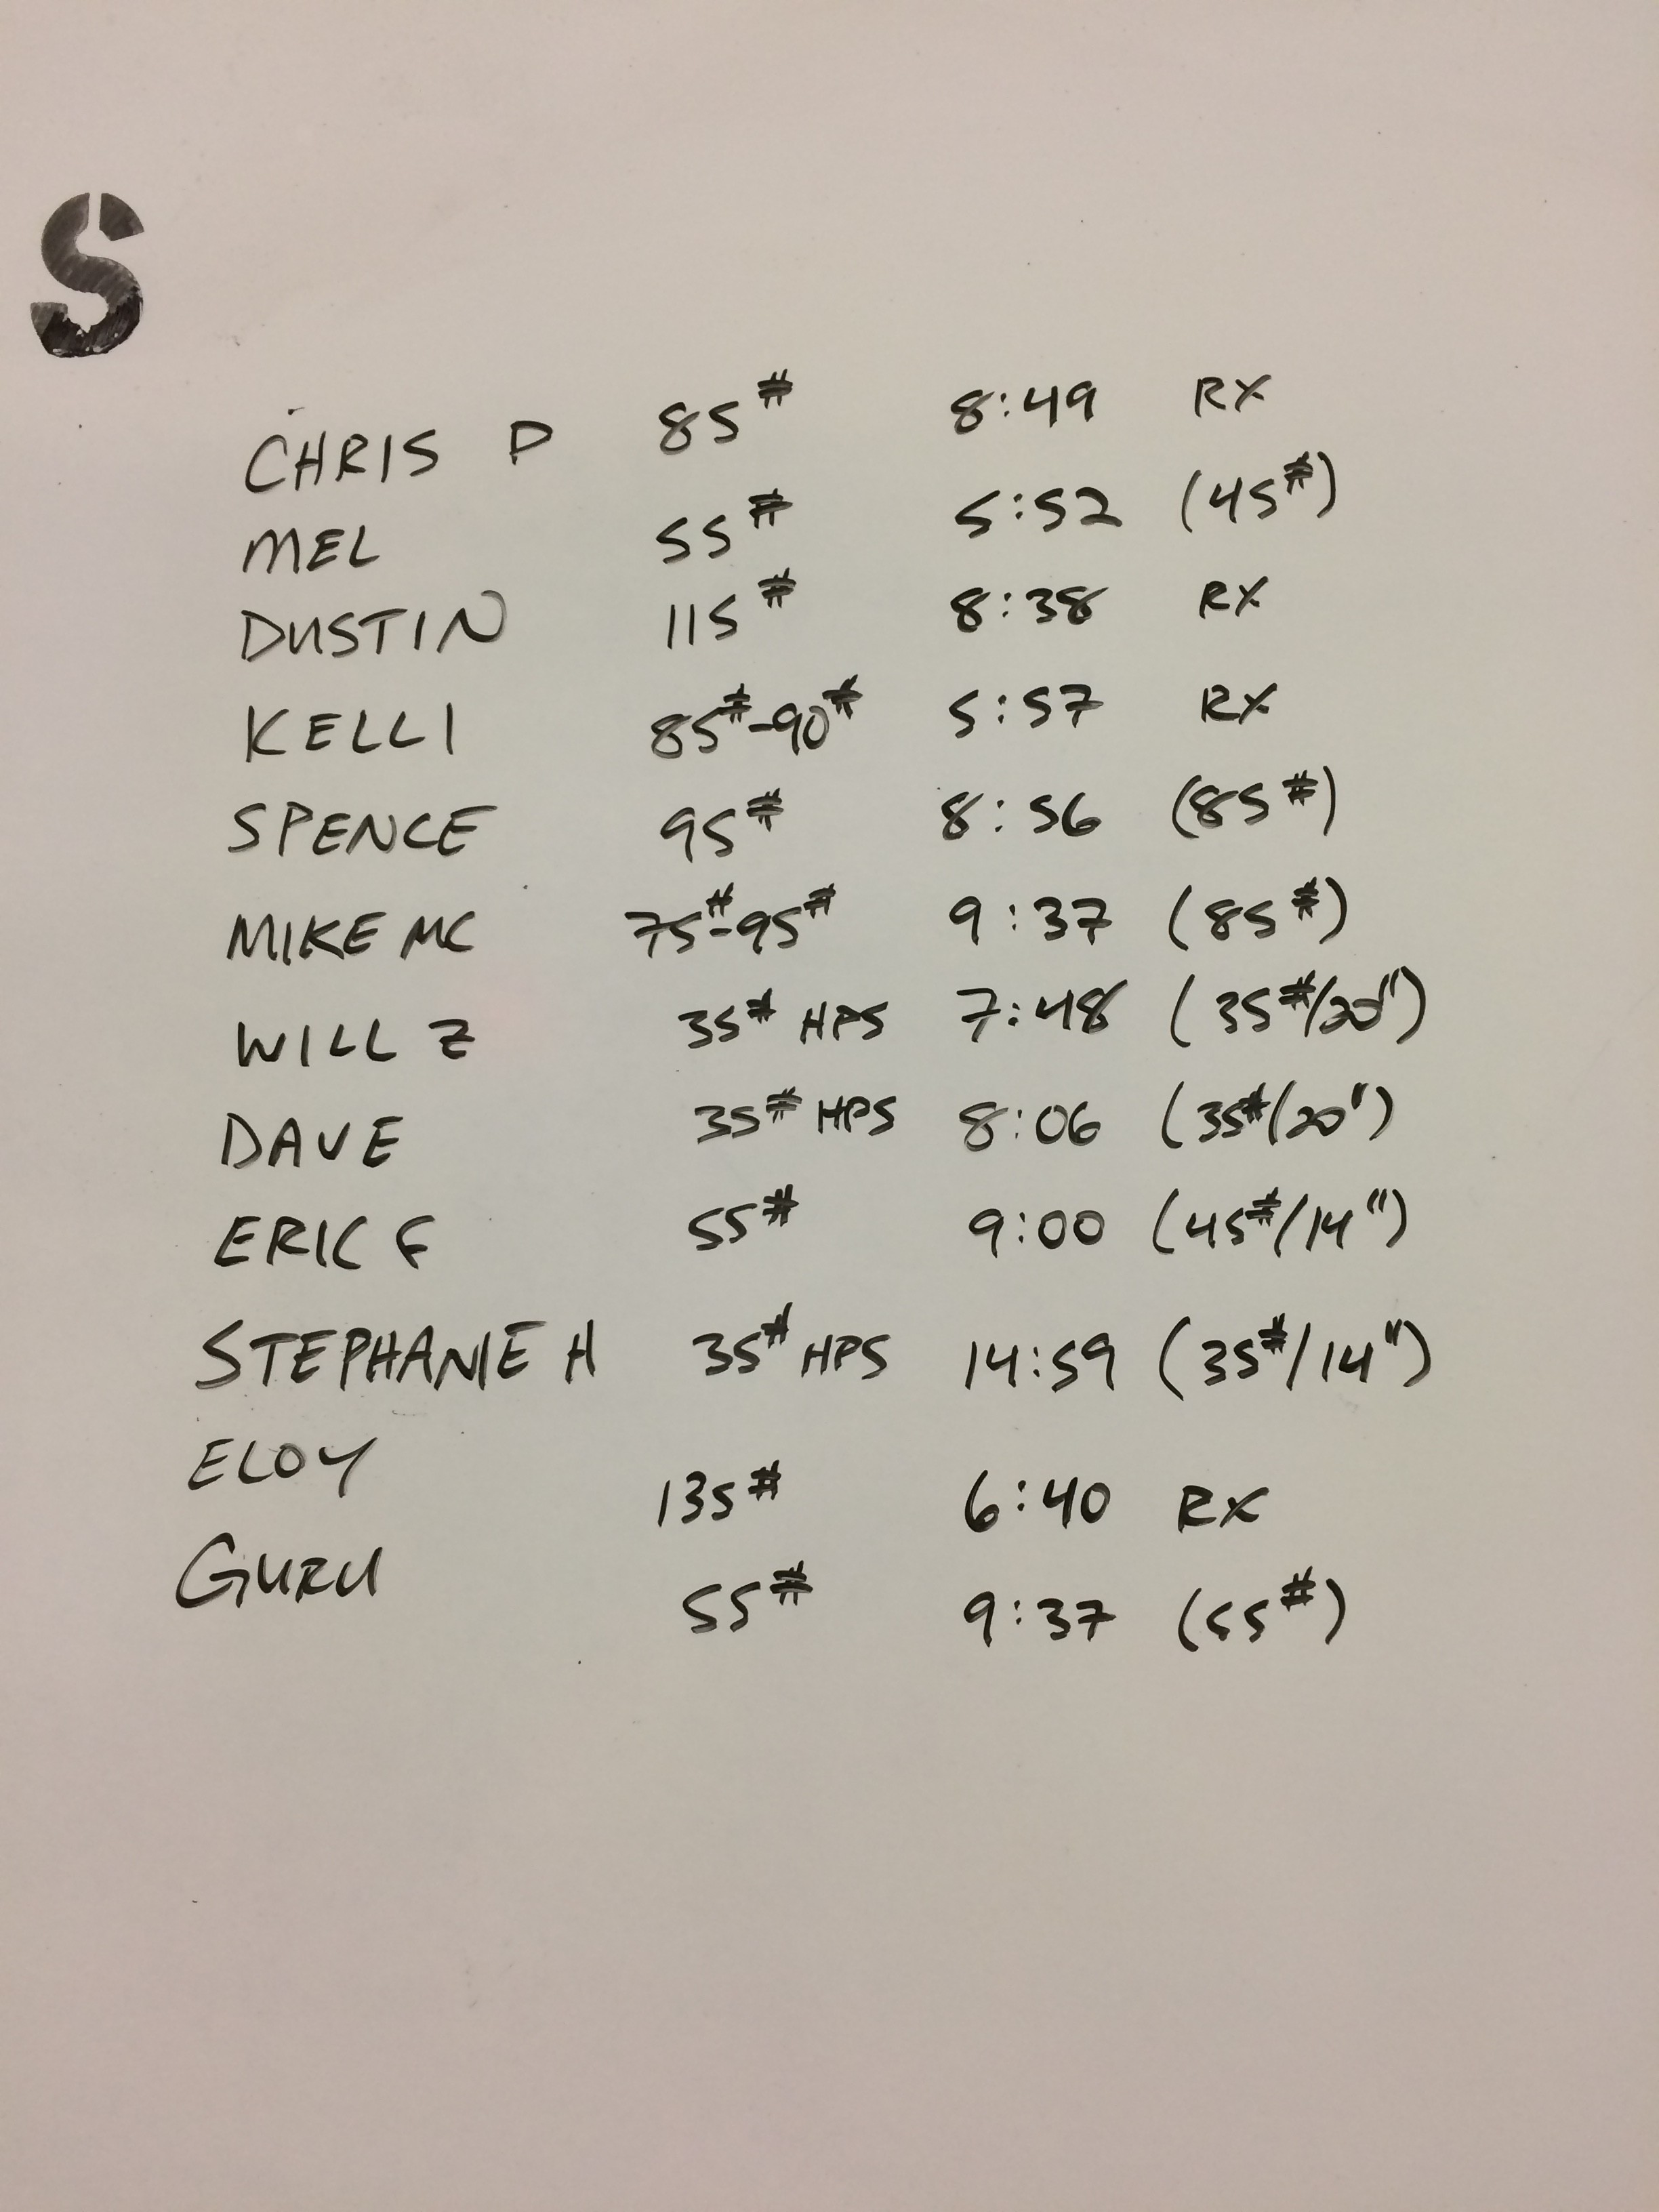 S
CHRIS P 85# 8:49 RX
MEL 55# 5:52 (45#)
DUSTIN 115# 8:38 RX
KELLI 85#-90# 5:57 RX
SPENCE 95# 8:56 (85#)
MIKE MC 75#-95# 9:37 (85#)
WILL Z 35# HPS 7:48 (35#/20")
DAVE 35# HPS 8:06 (35#/20")
ERIC F 55# 9:00 (45#/14")
STEPHANIE H 35# HPS 14:59 (35#/14")
ELOY 135# 6:40 RX
GURU 55# 9:37 (55#)